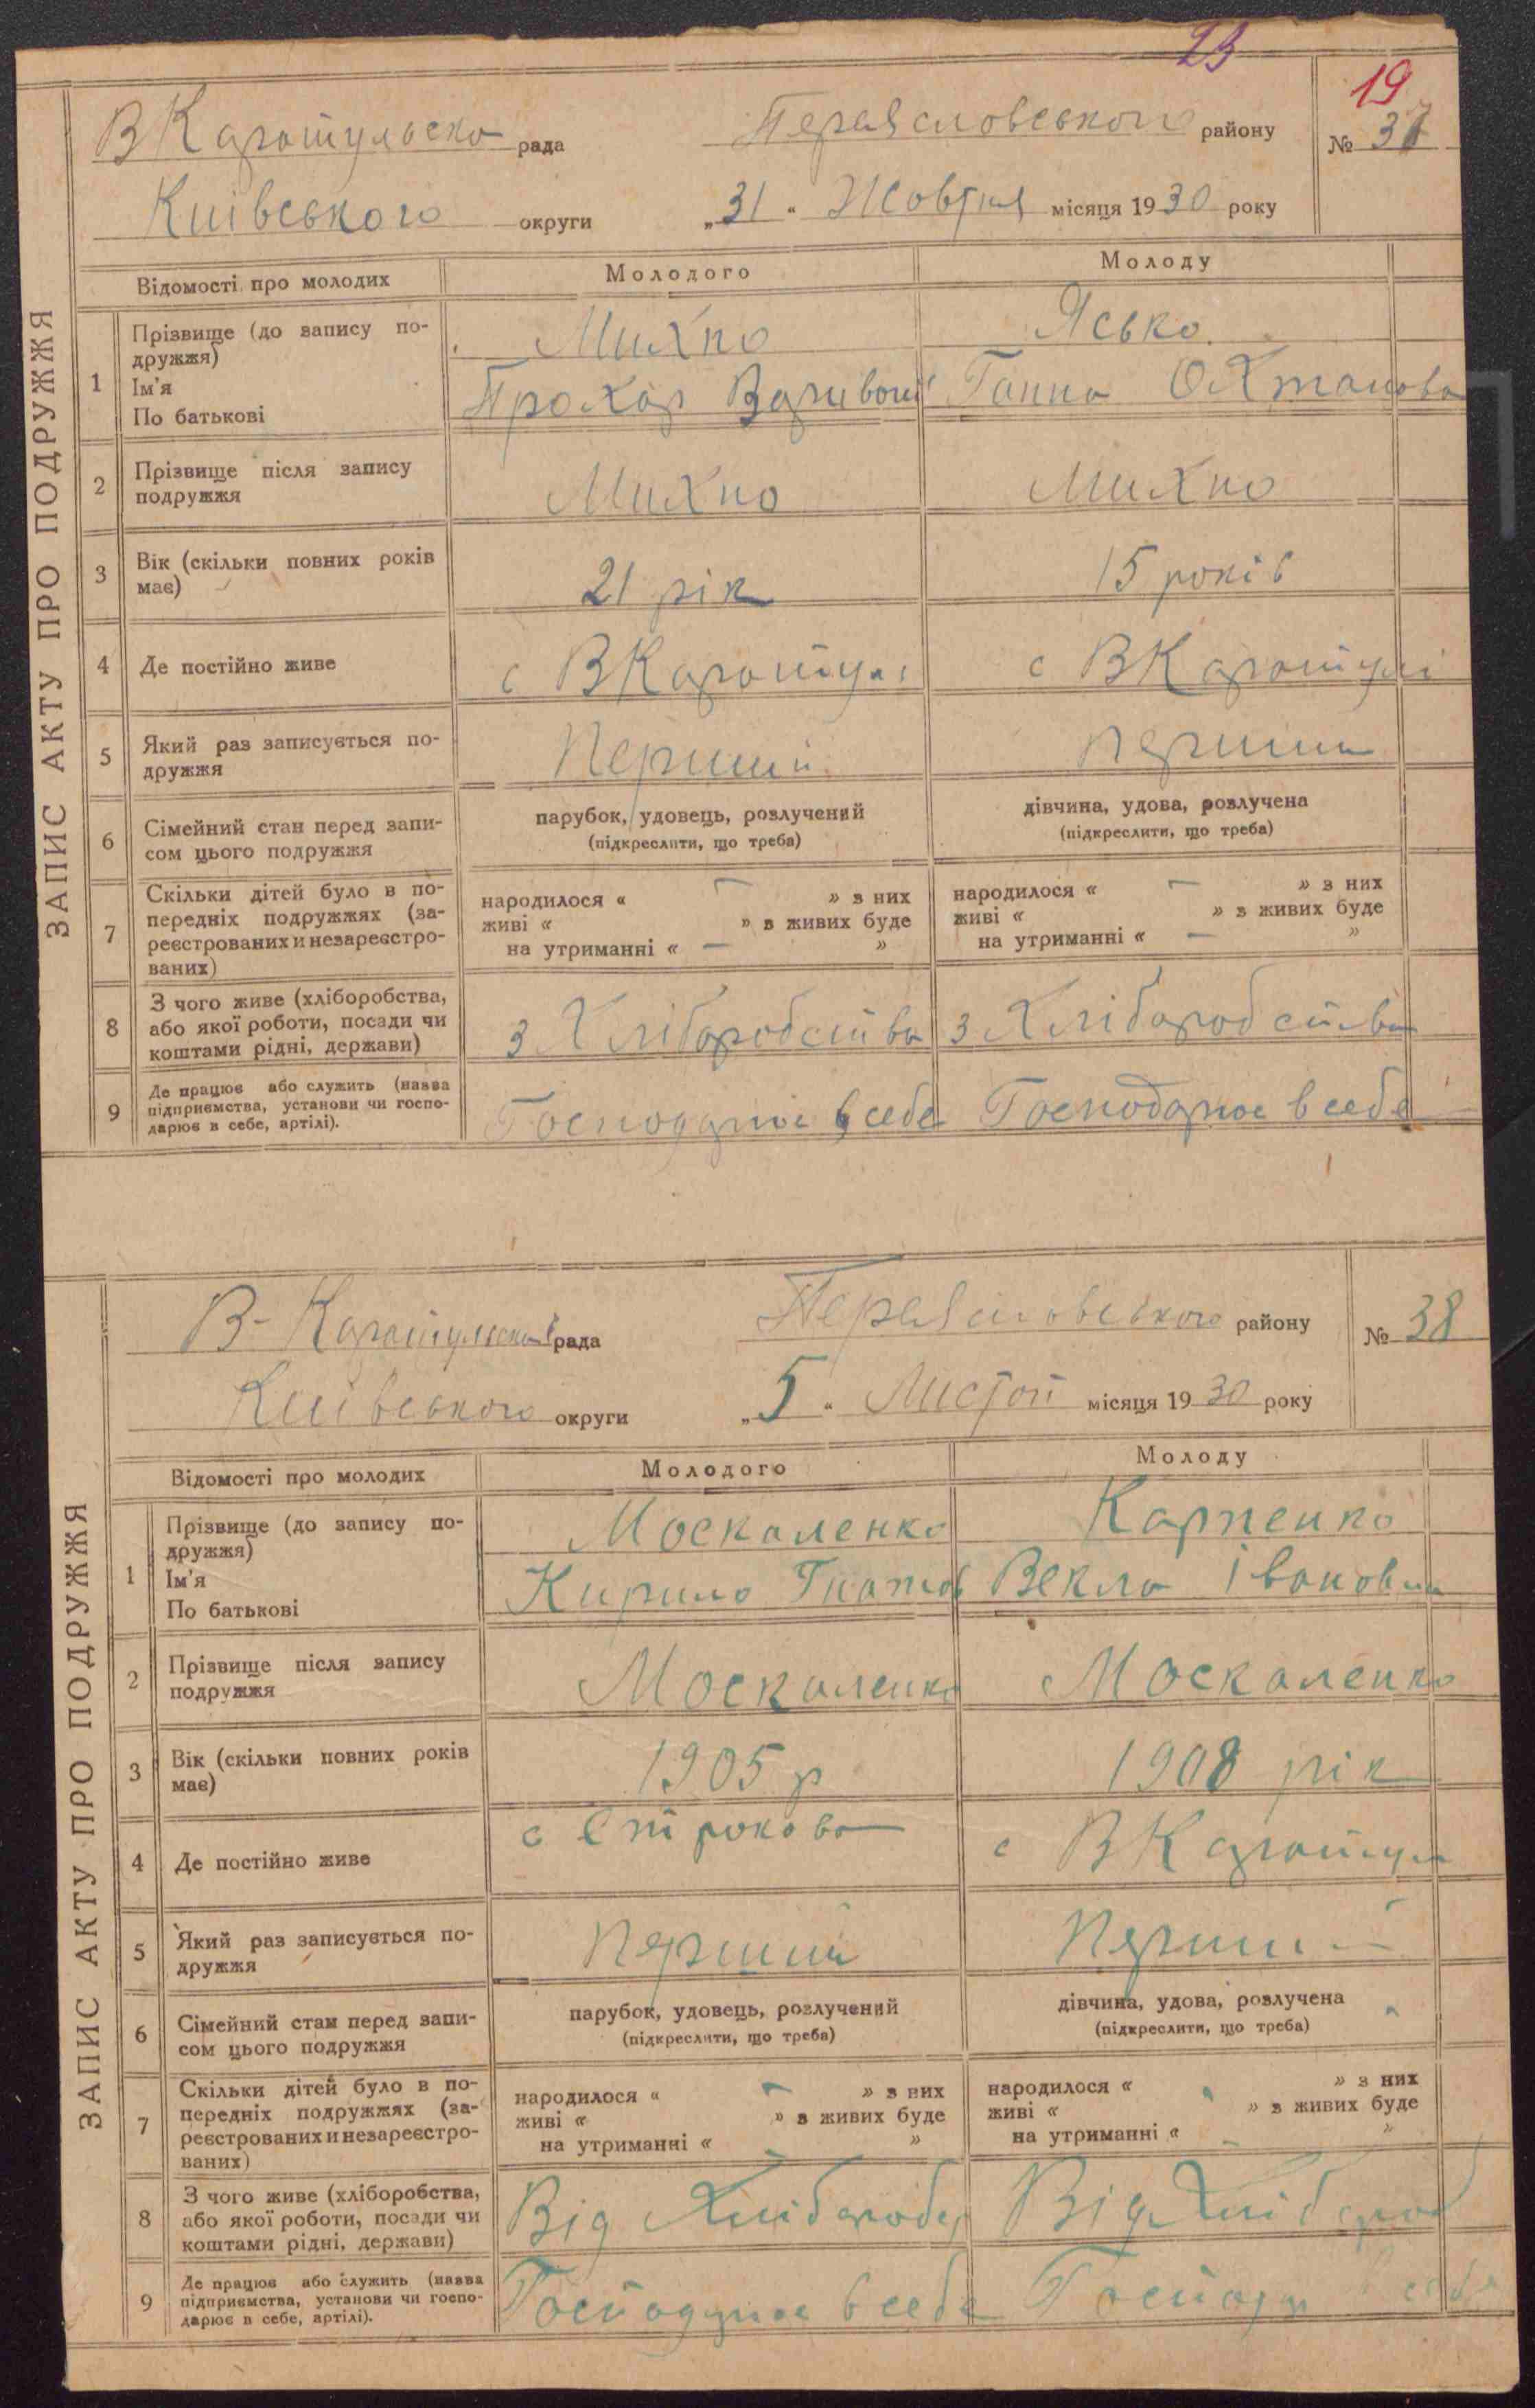 23
19
В Каратульська рада Переясловського району № 37
Київського округи „31“ Жовтня місяця 1930 року
ЗАПИС АКТУ ПРО ПОДРУЖЖЯ
Відомості про молодих Молодого Молоду
1 Прізвище (до запису по-
дружжя)
Ім'я
По батькові
Михно Ясько
Прохор Ганна
2 Прізвище після запису
подружжя
Михно Михно
3 Вік (скільки повних років
має)
21 рік 15 років
4 Де постійно живе
с В Каратулі с В Каратулі
5 Який раз записується по-
дружжя
Перший перший
6 Сімейний стан перед запи-
сом цього подружжя
парубок, удовець, розлучений
(підкреслити, що треба)
дівчина, удова, розлучена
(підкреслити, що треба)
7 Скільки дітей було в по-
передніх подружжях (за-
реєстрованих и незареєстро-
ваних)
народилося « — » з них
живі « » з живих буде
на утриманні « — »
народилося « — » з них
живі « » з живих буде
на утриманні « — »
8 З чого живе (хліборобства,
або якої роботи, посади чи
коштами рідні, держави)
з Хлібаробства з Хлібаробства
9 Де працює або служить (назва
підприємства, установи чи госпо-
дарює в себе, артілі).
Господарює в себе Господарює в себе
В-Каратульська рада Переясловського району № 38
Київського округи „5“ Листоп місяця 1930 року
ЗАПИС АКТУ ПРО ПОДРУЖЖЯ
Відомості про молодих Молодого Молоду
1 Прізвище (до запису по-
дружжя)
Ім'я
По батькові
Москаленко Карпенко
Кирило Гнатов Векла Івановна
2 Прізвище після запису
подружжя
Москаленко Москаленко
3 Вік (скільки повних років
має)
1905 р 1908 рік
4 Де постійно живе
с Строкова с В Каратуля
5 Який раз записується по-
дружжя
Перший Перший
6 Сімейний стан перед запи-
сом цього подружжя
парубок, удовець, розлучений
(підкреслити, що треба)
дівчина, удова, розлучена
(підкреслити, що треба)
7 Скільки дітей було в по-
передніх подружжях (за-
реєстрованих и незареєстро-
ваних)
народилося « — » з них
живі « » з живих буде
на утриманні « — »
народилося « » з них
живі « » з живих буде
на утриманні « — »
8 З чого живе (хліборобства,
або якої роботи, посади чи
коштами рідні, держави)
Від Від Хлібароб
9 Де працює або служить (назва
підприємства, установи чи госпо-
дарює в себе, артілі).
Господарює в себе Господар себе